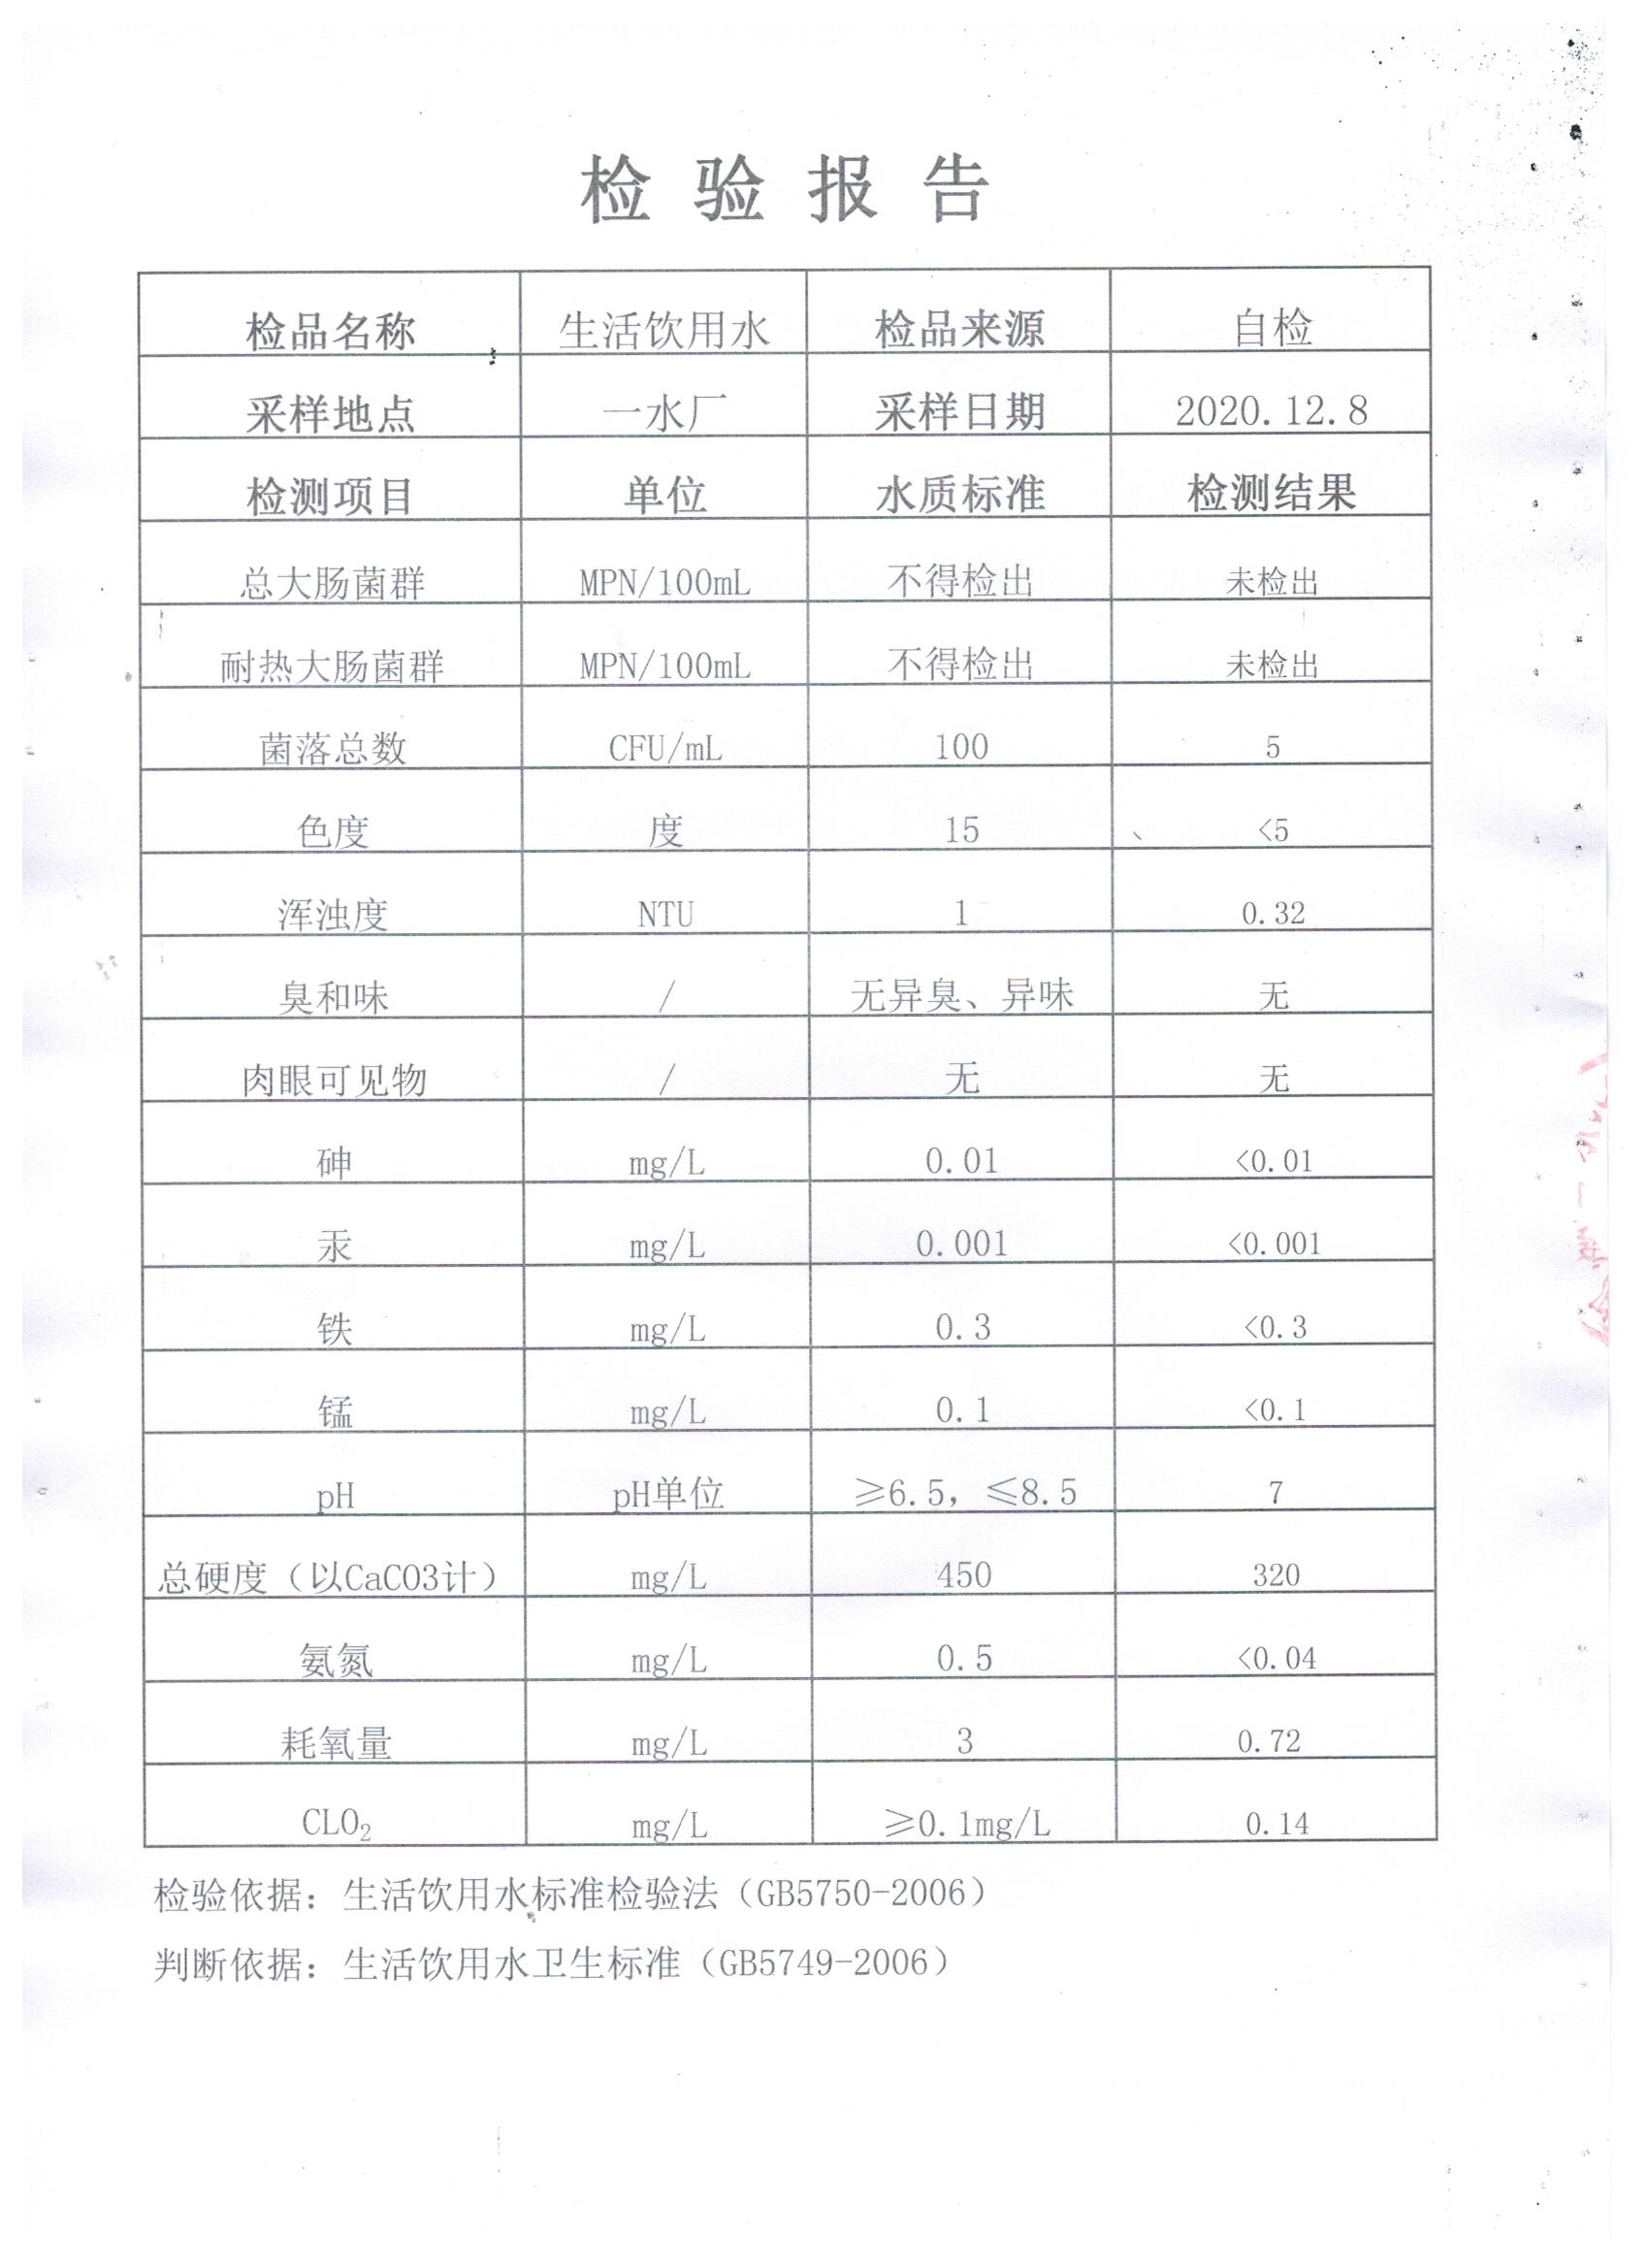 检验报告
检品名称 生活饮用水 检品来源 自检
采样地点 一水厂 采样日期 2020.12.8
检测项目 单位 水质标准 检测结果
总大肠菌群 MPN/100mL 不得检出 未检出
耐热大肠菌群 MPN/100mL 不得检出 未检出
菌落总数 CFU/mL 100 5
色度 度 15 <5
浑浊度 NTU 1 0.32
臭和味 / 无异臭、异味 无
肉眼可见物 / 无 无
砷 mg/L 0.01 <0.01
汞 mg/L 0.001 <0.001
铁 mg/L 0.3 <0.3
锰 mg/L 0.1 <0.1
pH pH单位 ≥6.5，≤8.5 7
总硬度（以CaCO3计） mg/L 450 320
氨氮 mg/L 0.5 <0.04
耗氧量 mg/L 3 0.72
CLO₂ mg/L ≥0.1mg/L 0.14
检验依据：生活饮用水标准检验法（GB5750-2006）
判断依据：生活饮用水卫生标准（GB5749-2006）